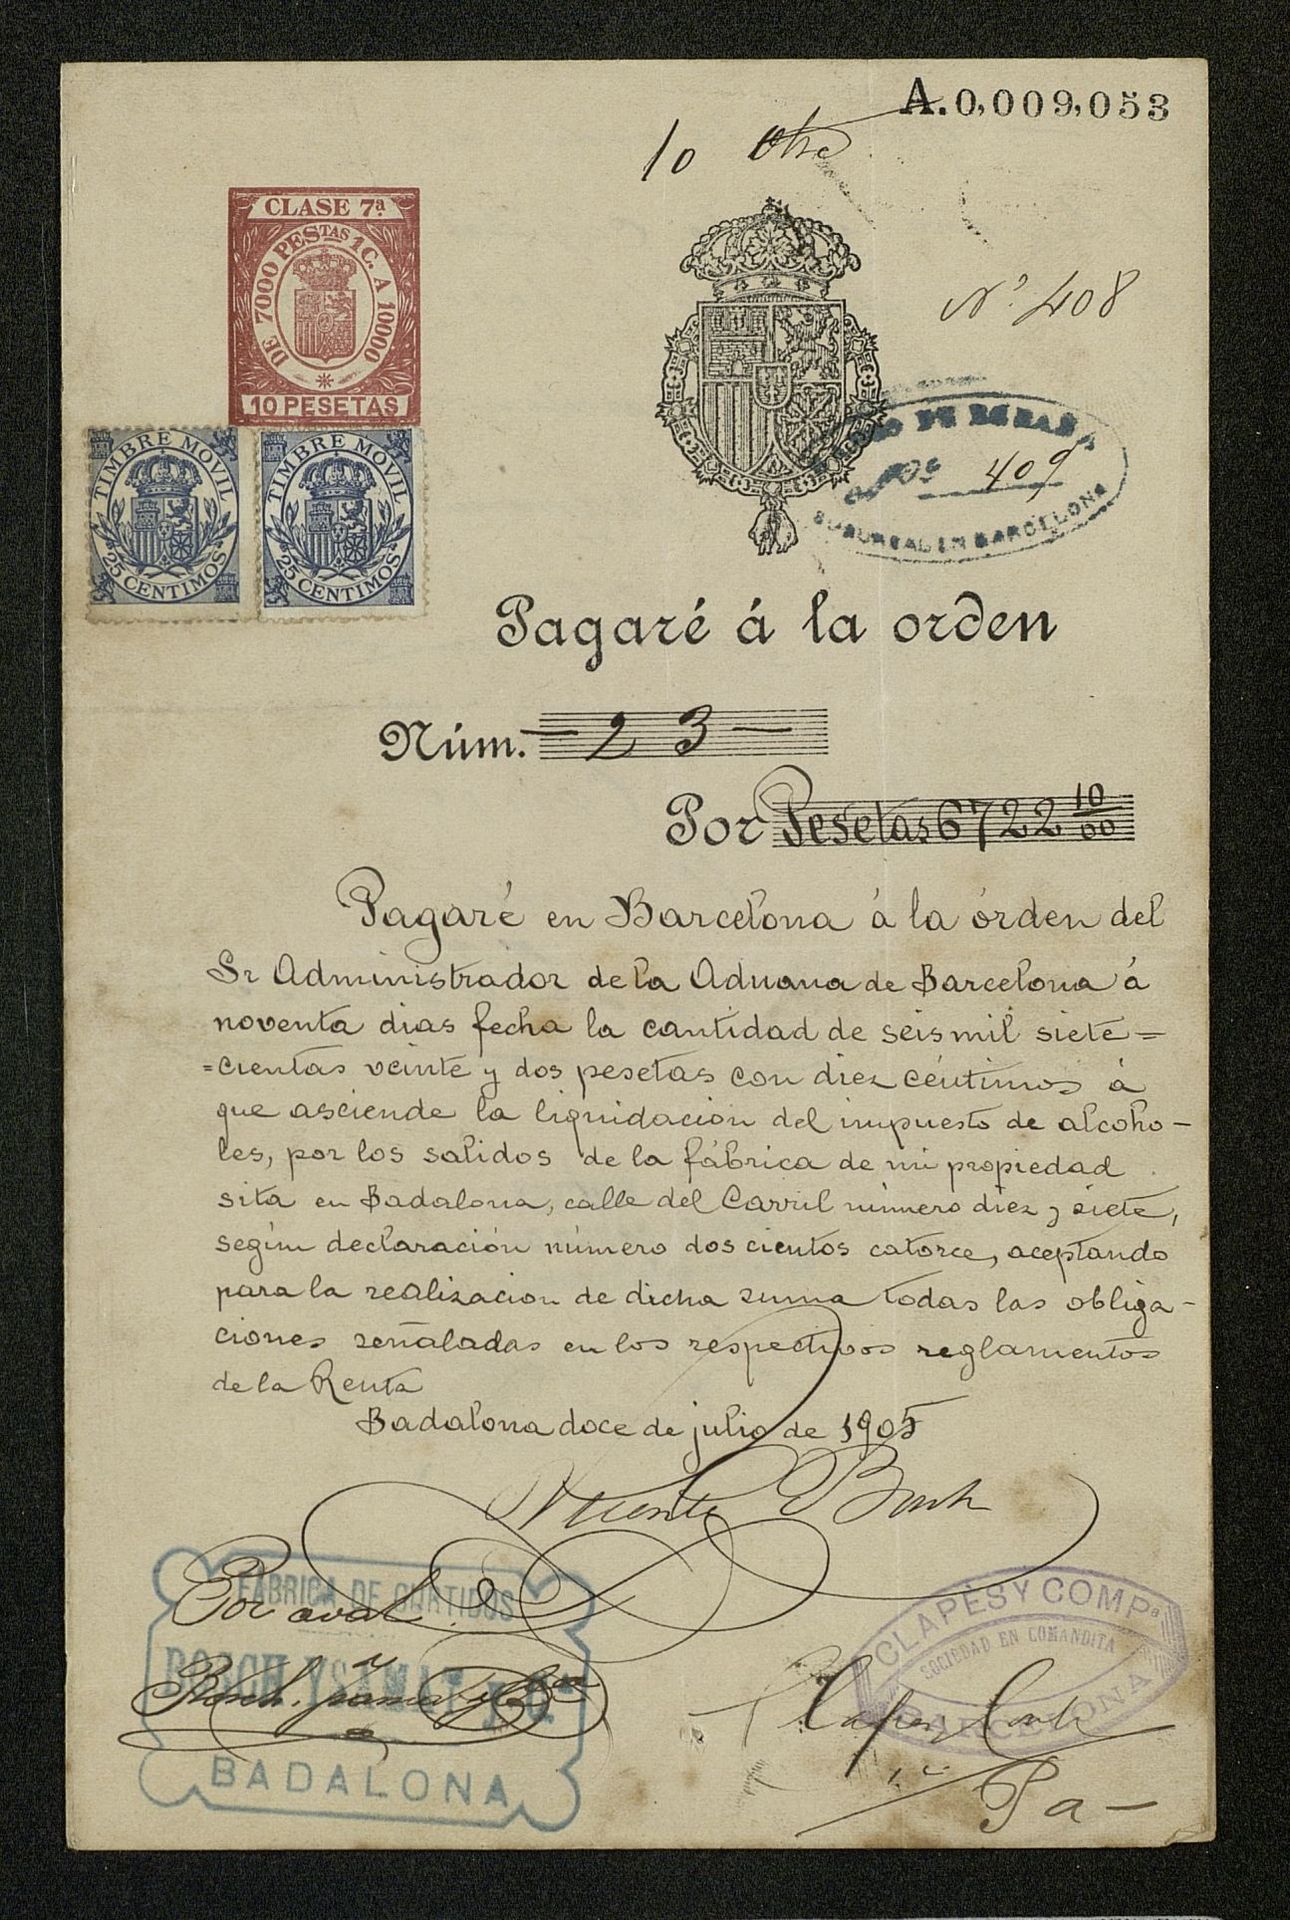 A.0,009,053
10
CLASE 7ª
DE 7000 PESTAS 1 C. A 10000
10 PESETAS
Nº 408
TIMBRE MOVIL
25 CENTIMOS
TIMBRE MOVIL
25 CENTIMOS
DE ESPAÑA
409
SUCURSAL EN BARCELONA
Pagaré á la orden
Núm. 23
Por Pesetas 6722 10/00
Pagaré en Barcelona á la órden del
Sr Administrador de la Aduana de Barcelona á
noventa dias fecha la cantidad de seis mil siete=
=cientas veinte y dos pesetas con diez céntimos á
que asciende la liquidacion del impuesto de alcoho-
les, por los salidos de la fábrica de mi propiedad
sita en Badalona, calle del Carril número diez y siete,
según declaración número doscientos catorce, aceptando
para la realizacion de dicha suma todas las obliga-
ciones señaladas en los respectivos reglamentos
de la Renta
Badalona doce de julio de 1905
Vicente Bosch
FABRICA DE CURTIDOS
Por aval
BOSCH Y
Bosch
BADALONA
CLAPÉS Y COMPª
SOCIEDAD EN COMANDITA
BARCELONA